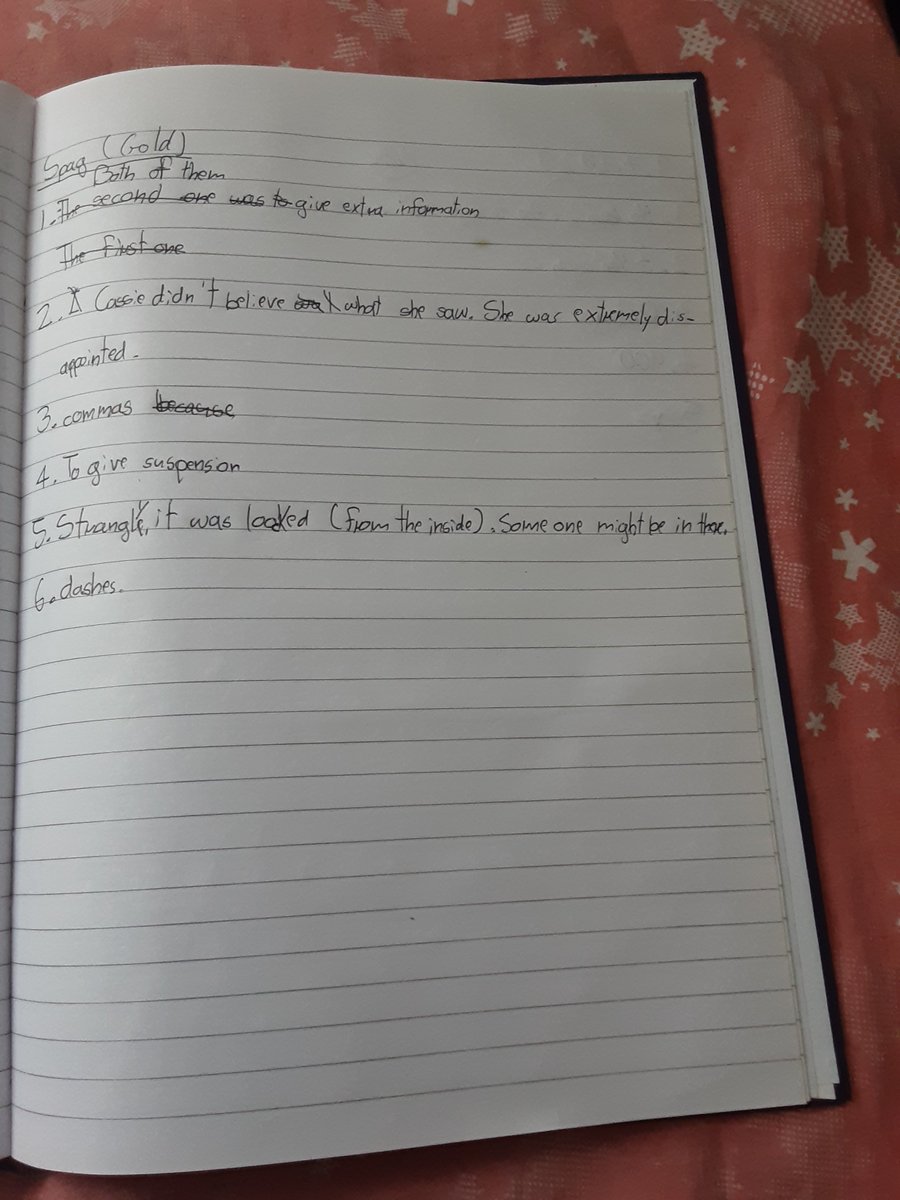 Spag (Gold)
Both of them
1. The second one was to give extra information
The first one
2. Cassie didn't believe what she saw. She was extremely dis-
appointed.
3. commas because
4. To give suspension
5. it was locked (from the inside). Some one might be in
6. dashes.